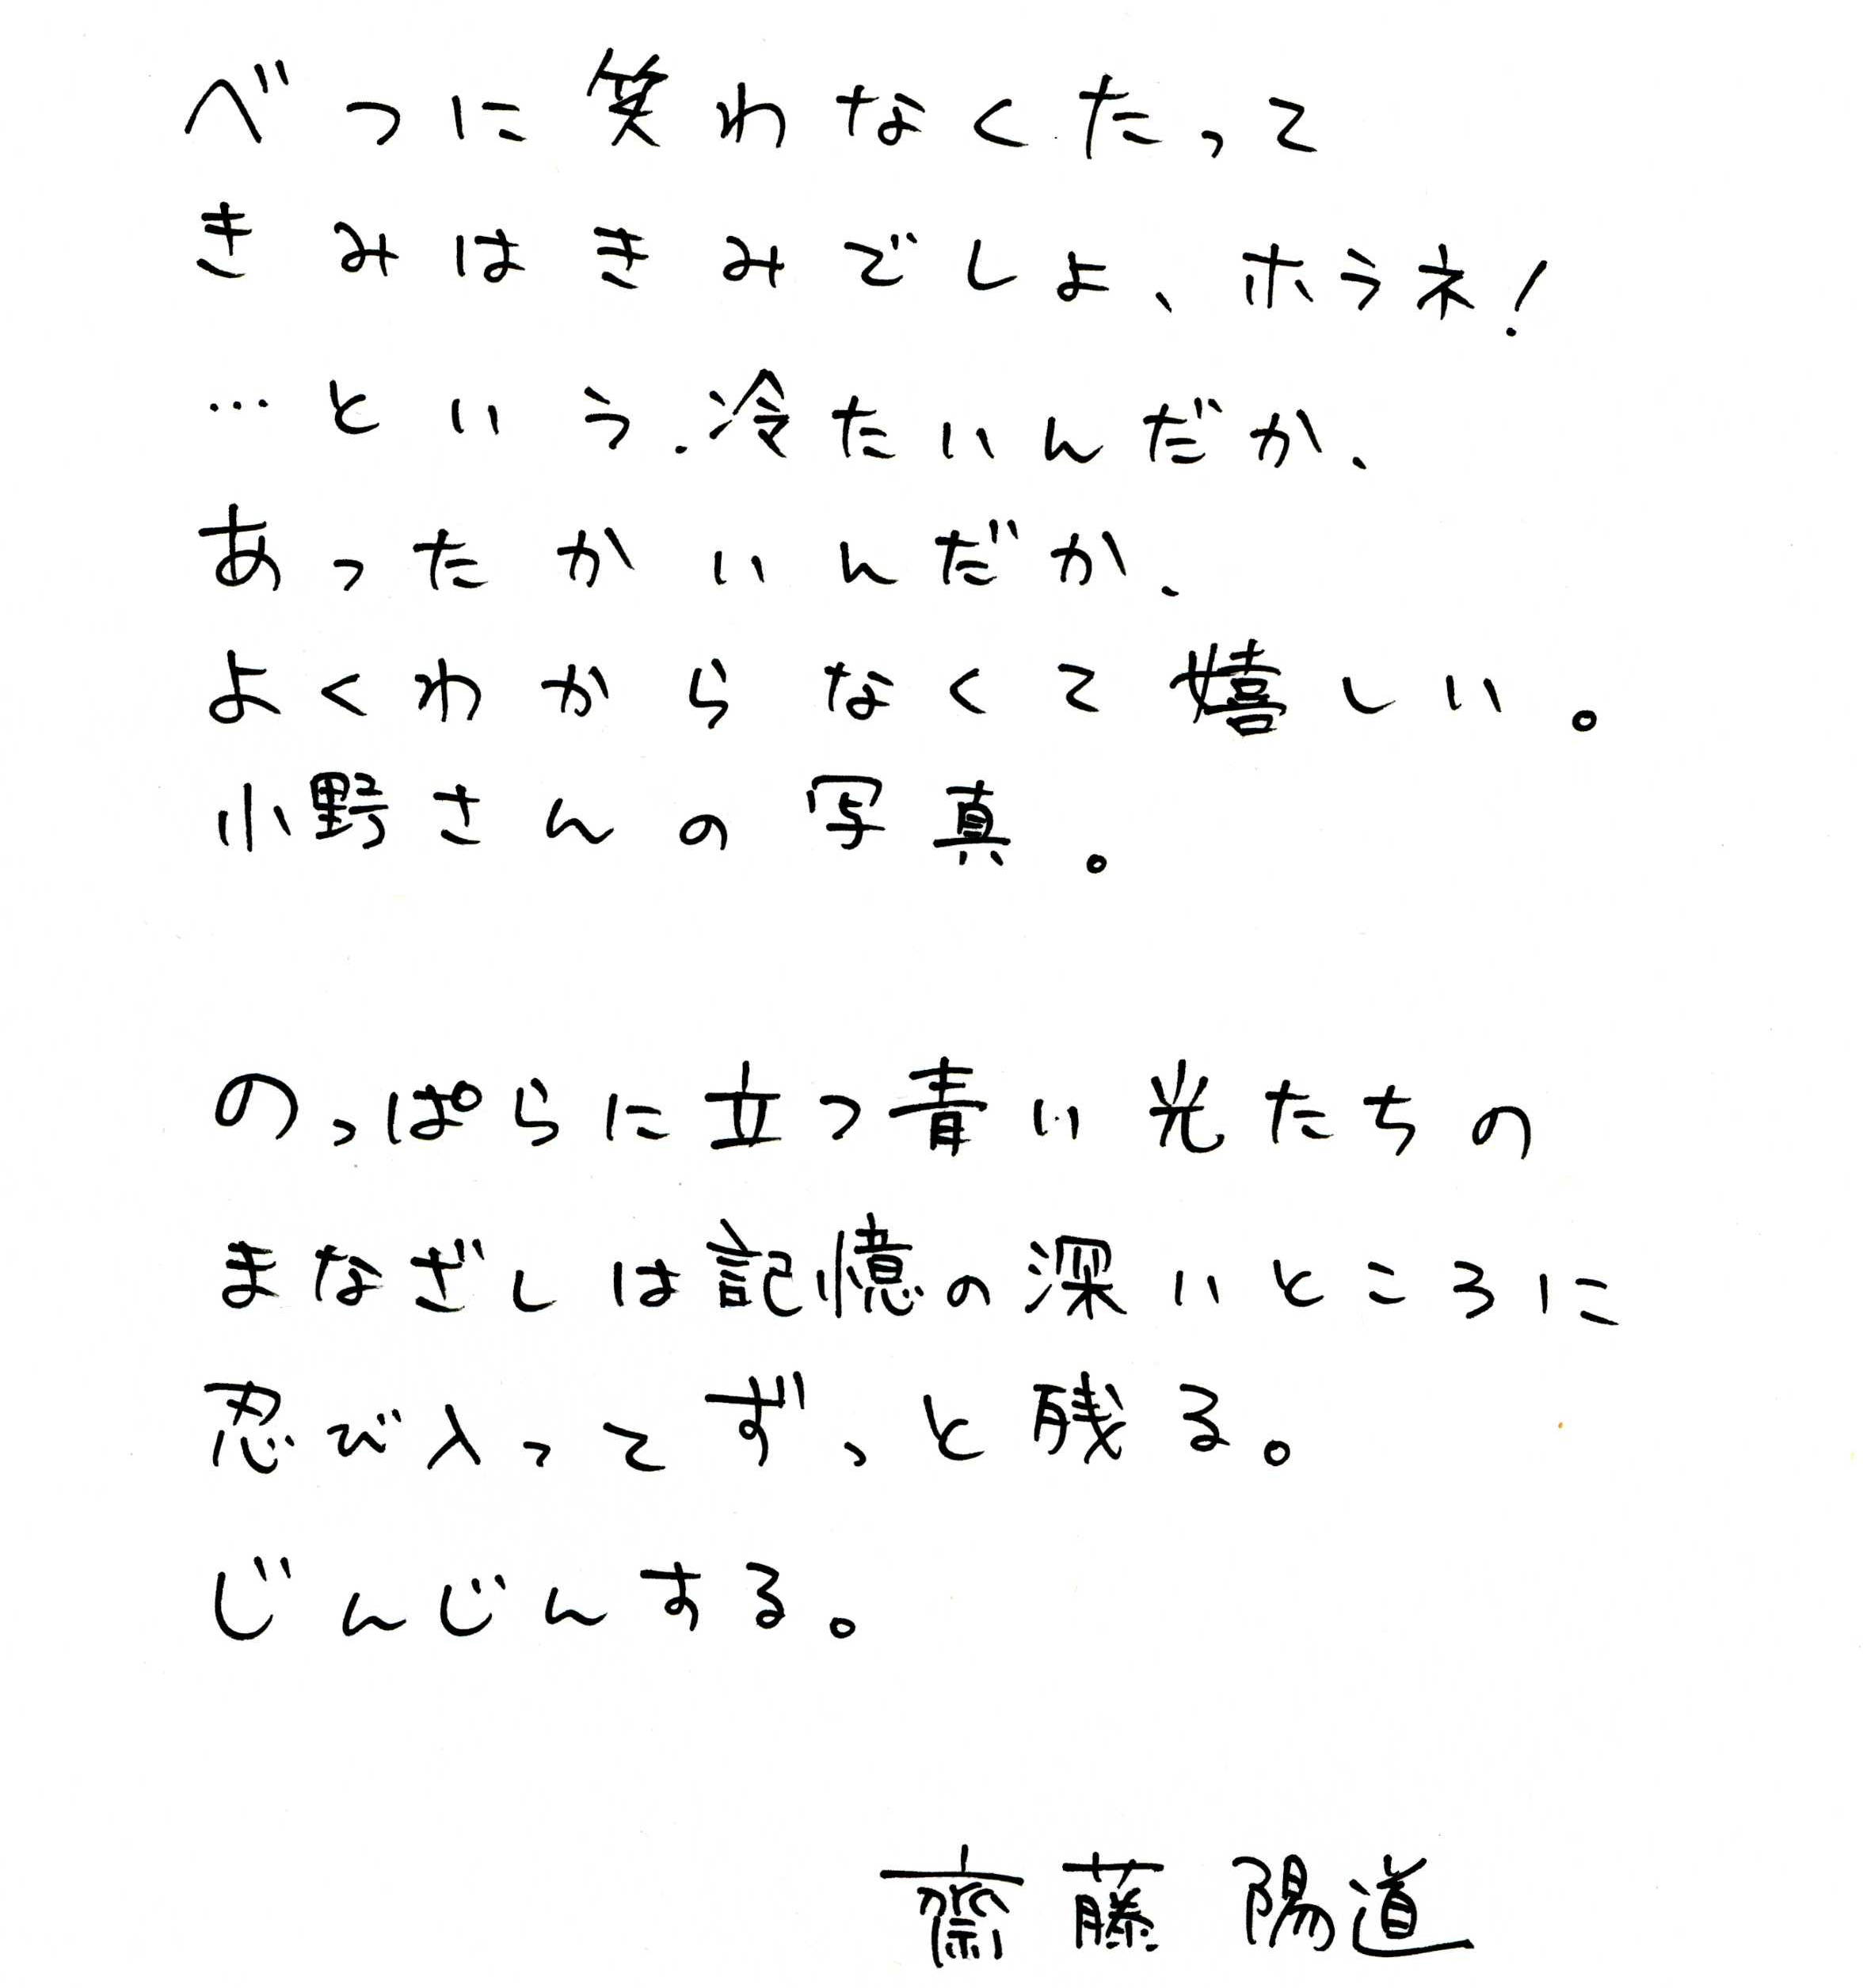 べつに笑わなくたって
きみはきみでしょ、ホラネ!
…という、冷たいんだか、
あったかいんだか、
よくわからなくて嬉しい。
小野さんの写真。
のっぱらに立つ青い光たちの
まなざしは記憶の深いところに
忍び入ってずっと残る。
じんじんする。
齋藤陽道